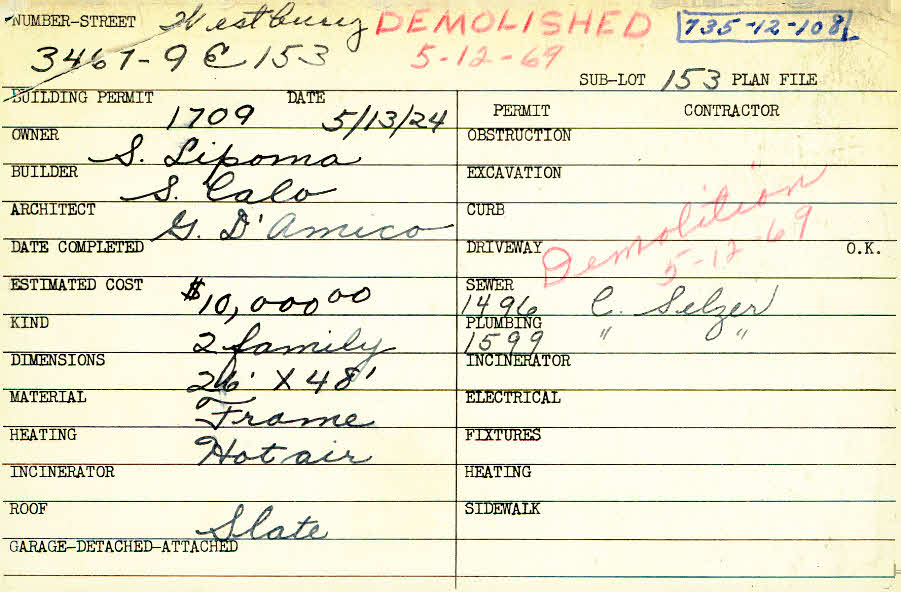 NUMBER-STREET Westbury DEMOLISHED 735-12-108
3467-9 E 153 5-12-69
SUB-LOT 153 PLAN FILE
BUILDING PERMIT 1709 DATE 5/13/24
OWNER S. Lipoma
BUILDER S. Calo
ARCHITECT G. D'Amico
DATE COMPLETED
ESTIMATED COST $10,000 00
KIND 2 family
DIMENSIONS 26' X 48'
MATERIAL Frame
HEATING Hot air
INCINERATOR
ROOF Slate
GARAGE-DETACHED-ATTACHED
PERMIT CONTRACTOR
OBSTRUCTION
EXCAVATION
CURB
DRIVEWAY O.K.
Demolition
5-12-69
SEWER
1496 C. Selzer
PLUMBING
1599 " "
INCINERATOR
ELECTRICAL
FIXTURES
HEATING
SIDEWALK